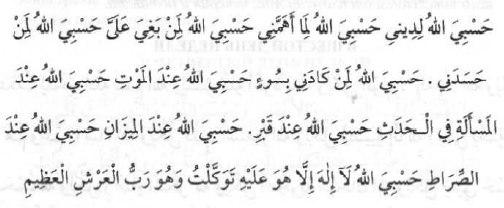 حَسْبِيَ اللهُ لِدِينِي حَسْبِيَ اللهُ لِمَا أَهَمَّنِي حَسْبِيَ اللهُ لِمَنْ بَغِيَ عَلَىَّ حَسْبِيَ اللهُ لِمَنْ
حَسَدَنِي . حَسْبِيَ اللهُ لِمَنْ كَادَنِي بِسُوءٍ حَسْبِيَ اللهُ عِنْدَ الْمَوْتِ حَسْبِيَ اللهُ عِنْدَ
الْمَسْأَلَةِ فِي الْحَدَثِ حَسْبِيَ اللهُ عِنْدَ قَبْرِ. حَسْبِيَ اللهُ عِنْدَ الْمِيزَانِ حَسْبِيَ اللهُ عِنْدَ
الصِّرَاطِ حَسْبِيَ اللهُ لَآ إِلٰهَ إِلَّا هُوَ عَلَيْهِ تَوَكَّلْتُ وَهُوَ رَبُّ الْعَرْشِ الْعَظِيمِ